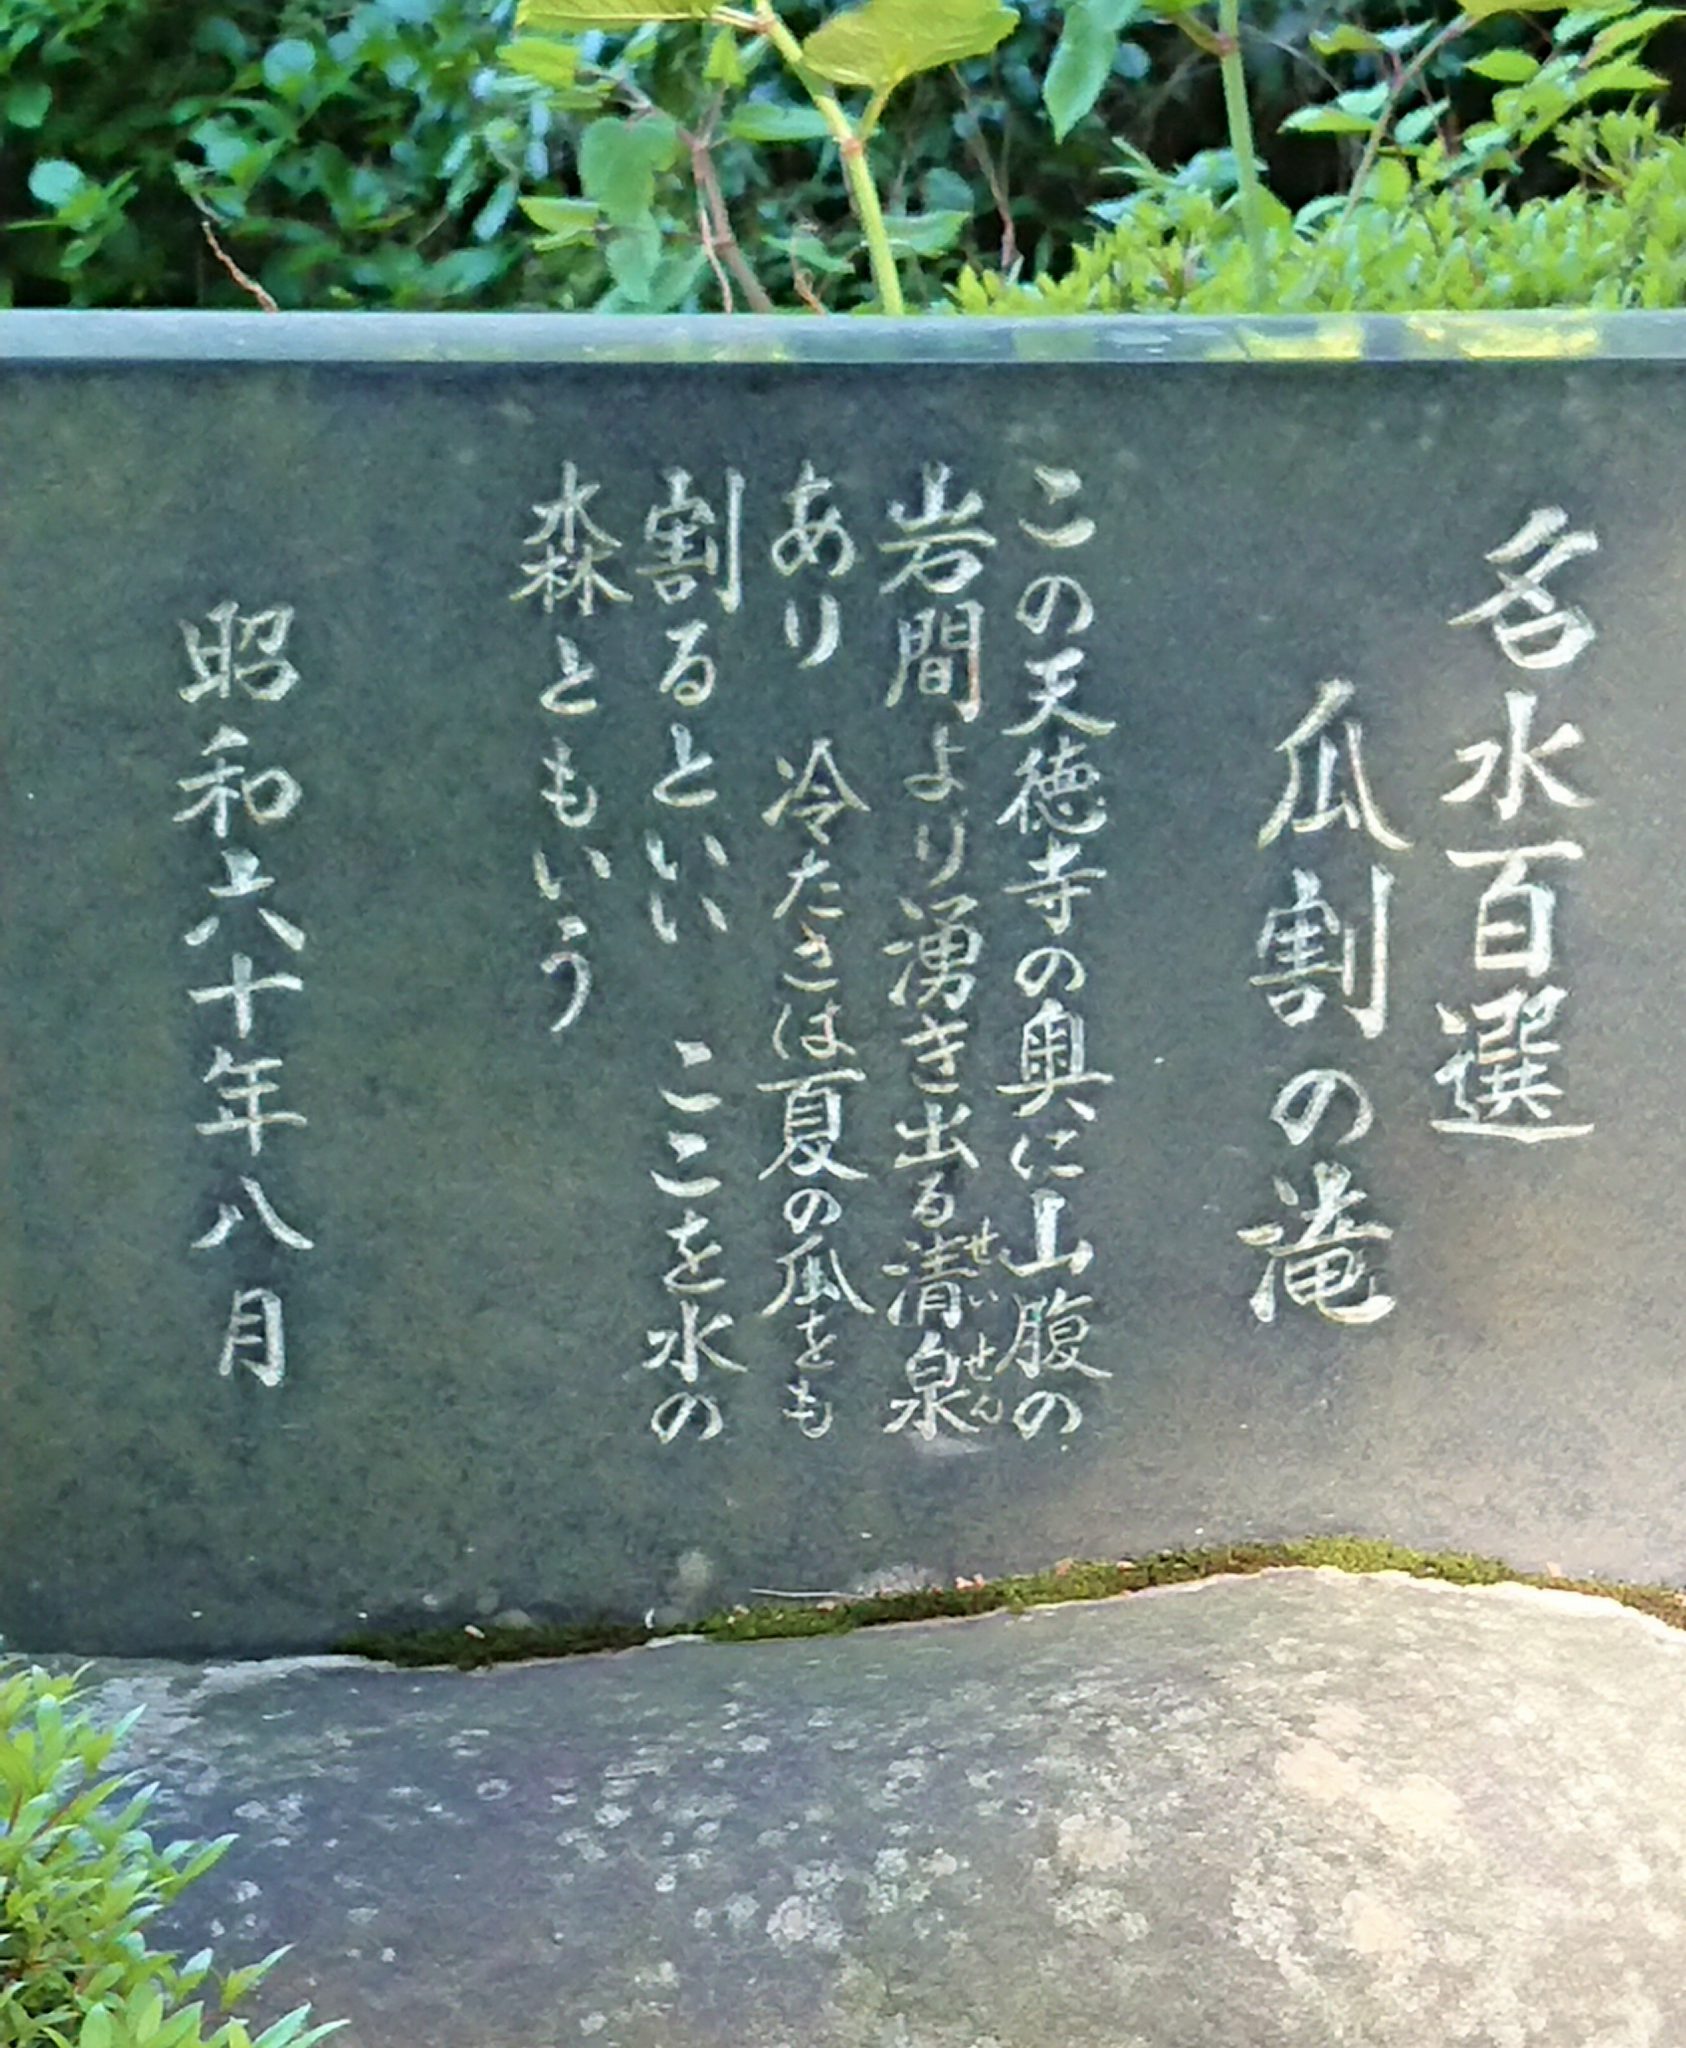 名水百選
瓜割の滝
この天徳寺の奥に山腹の
岩間より湧き出る清泉
せいせん
あり 冷たきは夏の瓜をも
割るといい ここを水の
森ともいう
昭和六十年八月